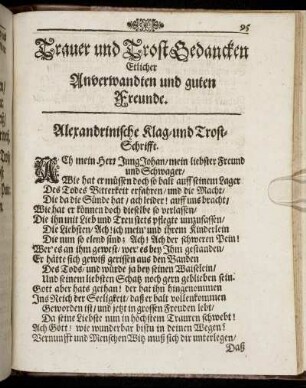 95
Trauer und Trost Gedancken
Etlicher
Anverwandten und guten
Freunde.
Alexandrinische Klag-und Trost-
Schrifft.
ACh mein Herr Jung Johan/ mein liebster Freund
und Schwager/
Wie hat er müssen doch so bald auff seinem Lager
Des Todes Bitterkeit erfahren/ und die Macht/
Die da die Sünde hat/ ach leider! auff uns bracht/
Wie hat er können doch dieselbe so verlassen/
Die ihn mit Lieb und Treu stets pflegte umzufassen/
Die Liebsten/ Ach! ich mein' und ihrem Kinderlein
Die nun so elend sind: Ach! Ach der schweren Pein!
Wer es an ihm gewest/ wer es bey Ihm gestanden/
Er hätte sich gewiß gerissen aus den Banden
Des Tods/ und würde ja bey seinen Wäiselein/
Und seinem liebsten Schatz noch gern geblieben sein.
Gott aber hats gethan! der hat ihn hingenommen
Ins Reich der Seeligkeit/ daß er balt vollenkommen
Geworden ist/ und jetzt in grossen Freuden lebt/
Da seine Liebste nun in höchstem Trauren schwebt!
Ach Gott! wie wunderbar bistu in deinen Wegen!
Vernunfft und Menschen Witz muß sich dir unterlegen/
Daß